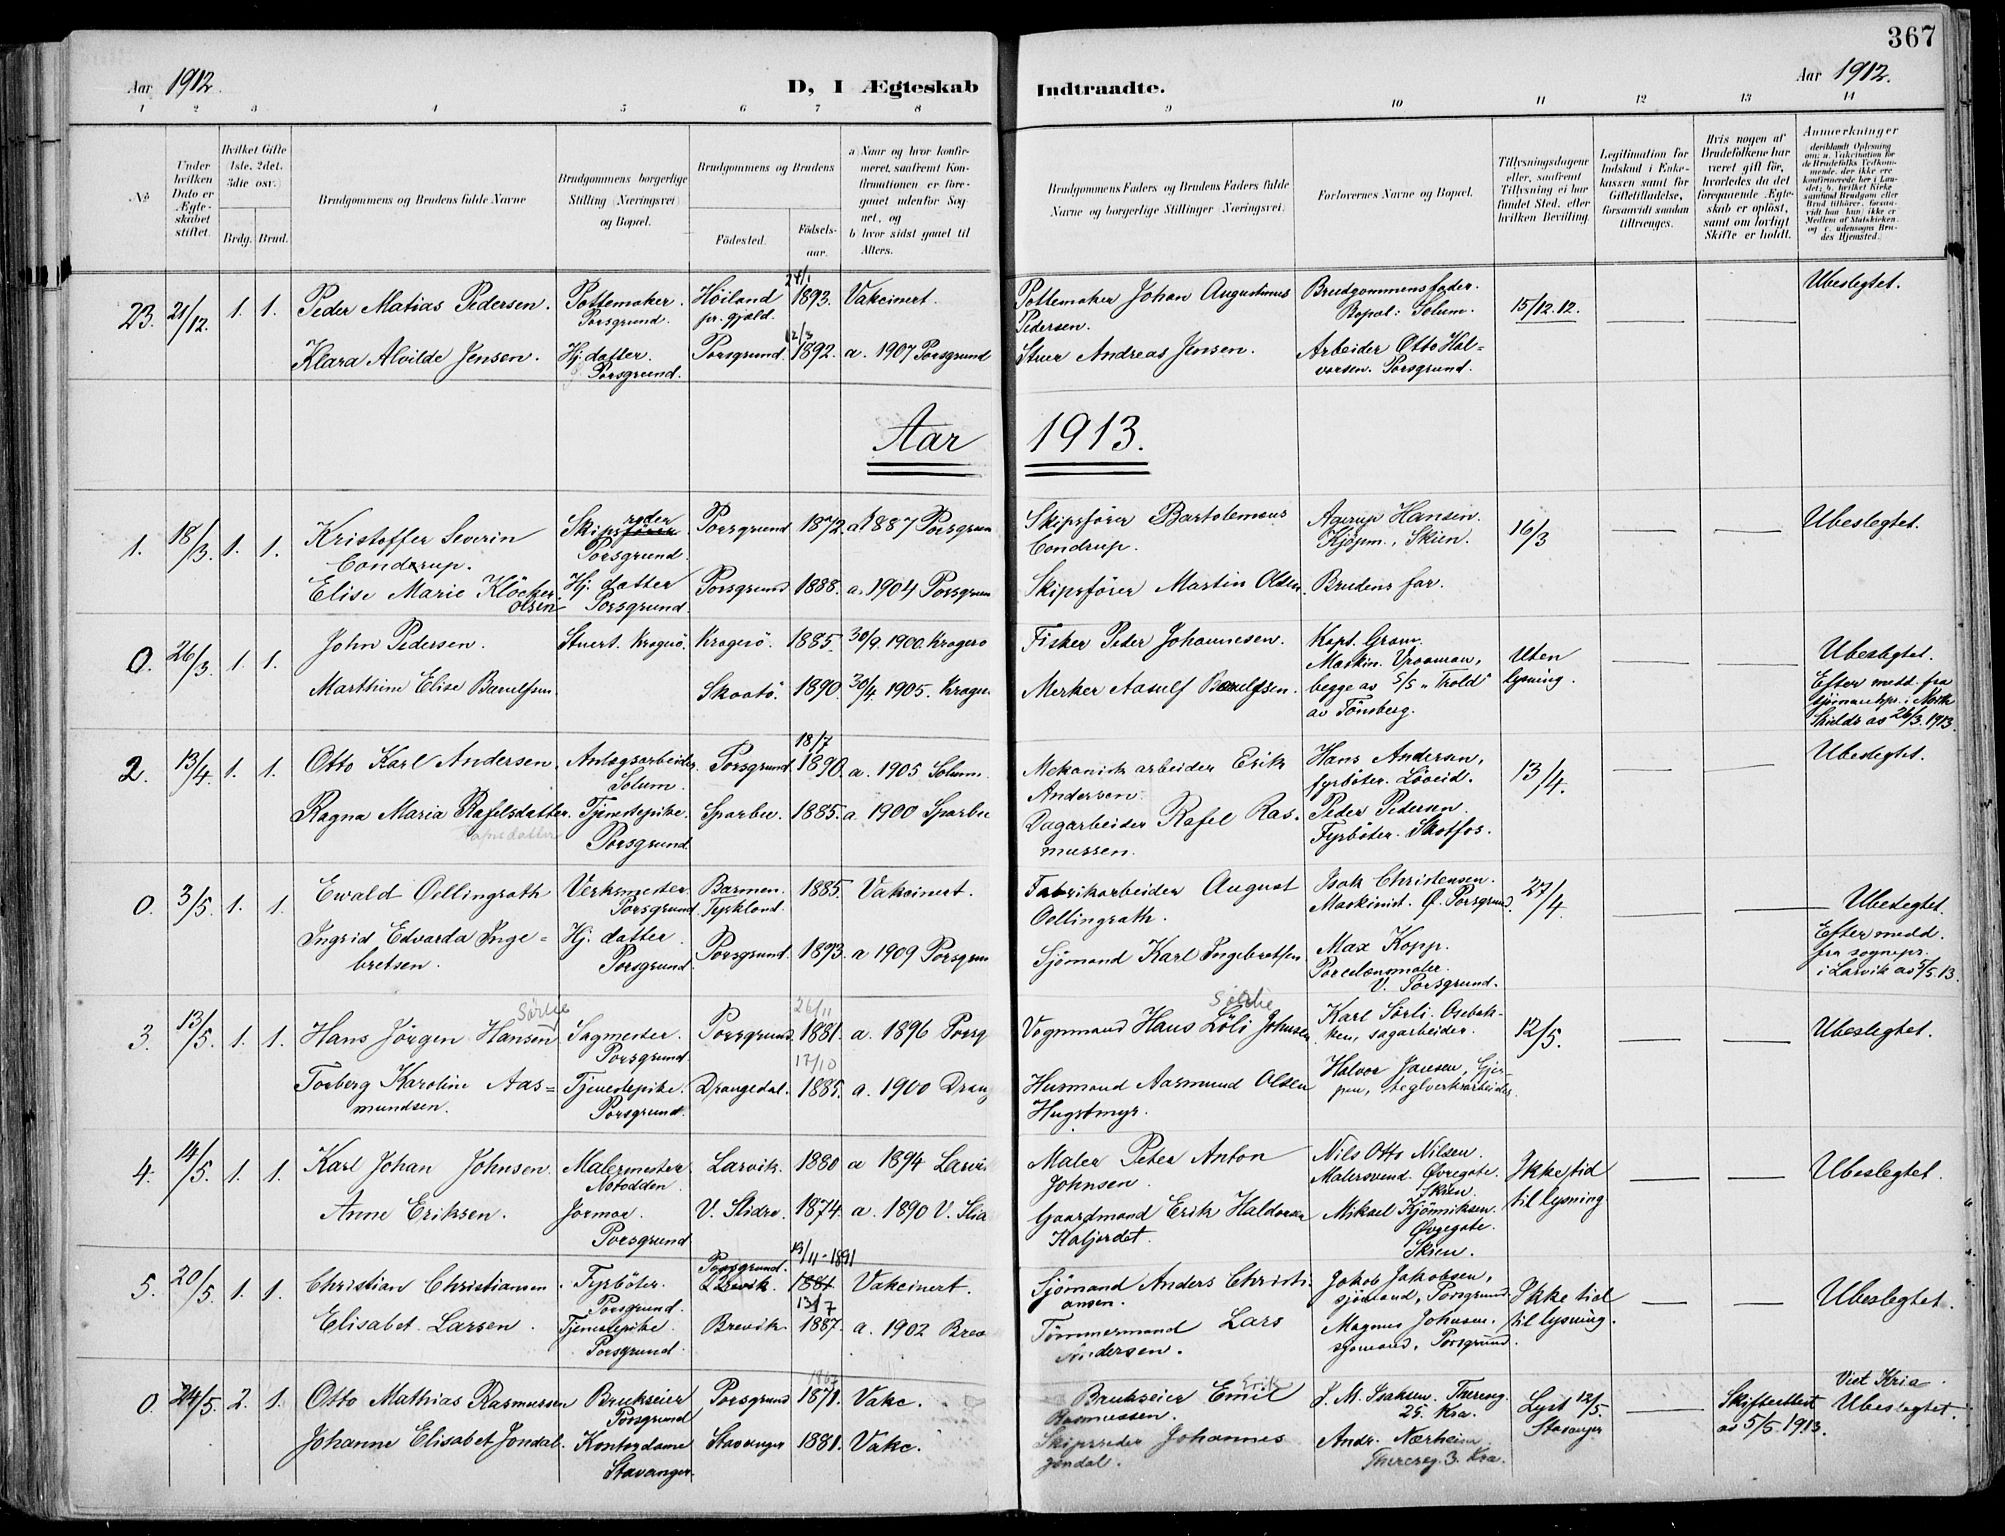 367
Aar 1912.
D, I Ægteskab Indtraadte.
Aar 1912.
1 2 3 4 5 6 7 8 9 10 11 12 13 14
No
Under hvilken Dato er Ægteskabet stiftet.
Hvilket Gifte (1ste, 2det, 3die osv.)
Brdg. Brud.
Brudgommens og Brudens fulde Navne
Brudgommens borgerlige Stilling (Næringsvei) og Bopæl.
Brudgommens og Brudens
Fødested.
Fødselsaar.
a) Naar og hvor konfirmeret, saafremt Konfirmationen er foregaaet udenfor Sognet, og
b) hvor sidst gaaet til Alters.
Brudgommens Faders og Brudens Faders fulde Navne og borgerlige Stillinger (Næringsvei).
Forlovernes Navne og Bopæl.
Tillysningsdagene eller, saafremt Tillysning ei har fundet Sted, efter hvilken Bevilling.
Legitimation for Indskud i Enkekassen samt for Giftetilladelse, forsaavidt saadan tiltrænges.
Hvis nogen af Brudefolkene har været gift før, hvorledes da det foregaaende Ægteskab er opløst, samt om lovligt Skifte er holdt.
Anmerkninger
(deriblandt Oplysning om: a. Vakcination for de Brudefolks Vedkommende, der ikke ere konfirmerede her i Landet; b. hvilket Kirkesamfund Brudgom eller Brud tilhører, forsaavidt han (hun) ikke er Medlem af Statskirken, og c. udensogns Brudes Hjemsted.)
23. 21/12 1. 1. Peder Matias Pedersen. Pottemaker. Porsgrund. Høiland pr.gjæld. 24/1 1893. Vakcinert. Pottemaker Johan Augustinus Pedersen. Brudgommens fader. Bopæl: Solum. 15/12.12. Ubeslegtet.
Klara Alvilde Jensen. Hj. datter. Porsgrund. Porsgrund 12/3 1892. a. 1907 Porsgrund Stuer Andreas Jensen. Arbeider Otto Halvorsen. Porsgrund.
Aar 1913.
1. 18/3 1. 1. Kristoffer Severin Conderup. Skipsreder Porsgrund. Porsgrund 1872. a 1887 Porsgrun Skipsfører Bartolemeus Condrup. Agerup Hansen. Kjøpm., Skien. 16/3 Ubeslegtet.
Elise Marie Kløcker Olsen Hj. datter Porsgrund. Porsgrund 1888. a. 1904 Porsgrun Skipsfører Martin Olsen Brudens far.
0. 26/3 1. 1. John Pedersen. Stuert. Kragerø. Kragerø. 1885. 30/9. 1900. Kragerø Fisker Peder Johannesen. Kapt. Gram, Maskin. Vrooman, begge av S/S "Trold" av Tønsberg. Uten lysning. Ubeslegtet. Efter medd. fra sjømandspr. i North Shields av 26/3. 1913.
Marthine Elise Skaatø. 1890. 30/4. 1905. Merker Aasulf
2. 13/4 1. 1. Otto Karl Andersen. Anlægsarbeider Solum. Porsgrund 18/7 1890. a. 1905 Solum. Mekanisk arbeider Erik Andersen. Hans Andersen, fyrbøter. Løveid. 13/4. Ubeslegtet.
Ragna Maria Rafelsdatter. Tjenestepike. Porsgrund Sparbu. 1885. a. 1900 Sparbu Dagarbeider Rafel Rasmussen. Peder Pedersen. Fyrbøter. Skotfos.
0. 3/5. 1. 1. Ewald Oellingrath Verksmester Porsgrund Barmen. Tyskland. 1885. Vakcinert. Fabrikarbeider August Oellingrath. Isak Christensen. Maskinist. Ø. Porsgrund. 27/4. Ubeslegtet. Efter medd. fra sognepr. i Larvik av 5/5. 13.
Ingrid Edvarda Ingebretsen. Hj. datter. Porsgrund. Porsgrund. 1893. a 1909 Porsgrun Sjømand Karl Ingebretsen Max Kopp. Porcelænsmaler. V. Porsgrund.
3. 13/5. 1. 1. Hans Jørgen Hansen Sørlie Sagmester. Porsgrund. Porsgrund 26/11 1881. a. 1896 Porsg Vognmand Hans Johnsen Karl Sørli. Osebakken, sagarbeider. 12/5. Ubeslegtet.
Torberg Karoline Aasmundsen. Tjenestepike. Porsgrund. Drangedal. 17/10 1885. a. 1900 Drang Husmand Aasmund Olsen Hugstmyr. Halvor Jansen, Gjerpen, teglverksarbeider.
4. 14/5. 1. 1. Karl Johan Johnsen. Malermester Notodden. Larvik. 1880 a 1894 Larvi Maler Peter Anton Johnsen. Nils Otto Nilsen. Malersvend. Øvregate. Skien. Ikke tid til lysning Ubeslegtet.
Anne Eriksen. Jormor. Porsgrund V. Slidre. 1874. a. 1890 V. Slid Gaardmand Erik Haldorsen Kaljerdet. Mikael Kjønniksen. Øvregate. Skien.
5. 20/5. 1. 1. Christian Christiansen Fyrbøter. Porsgrund. Porsgrund. Brevik. 19/11-1891 1881 Vakcinert. Sjømand Anders Christiansen. Jakob Jakobsen, sjømand, Porsgrund Ikke tid til lysning. Ubeslegtet.
Elisabet Larsen. Tjenestepike Porsgrund. Brevik. 13/7 1887. a. 1902 Brev Tømmermand Lars Andersen. Magnus Johnsen. sjømand, Porsgrund.
0. 24/5. 2. 1. Otto Mathias Rasmussen Brukseier Porsgrund Porsgrund 1871. Vakc. Brukseier Emil Erik Rasmussen. J. M. Isaksen. Thereseg. 25. Kra. Lyst 12/5. Stavanger Skifteattest av 5/5. 1913. Viet Kria. Ubeslegtet.
Johanne Elisabet Jøndal. Kontordame Stavanger. Stavanger 1881. Vakc. Skipsreder Johannes Jøndal. Andr. Nærheim Thereseg. 3. Kra.